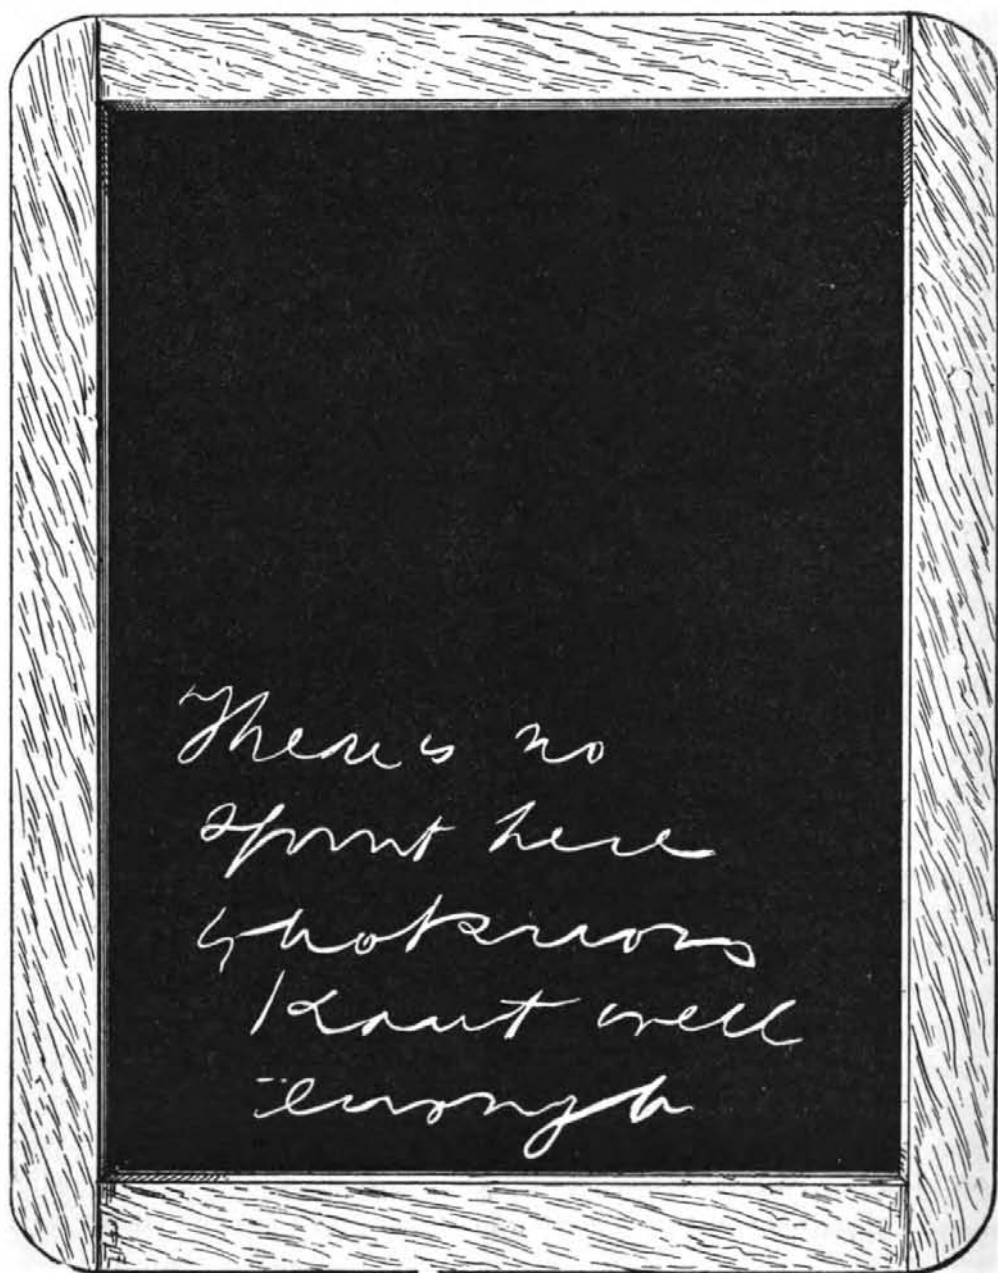 There is no
spirit here
that knows
Kant well
enough